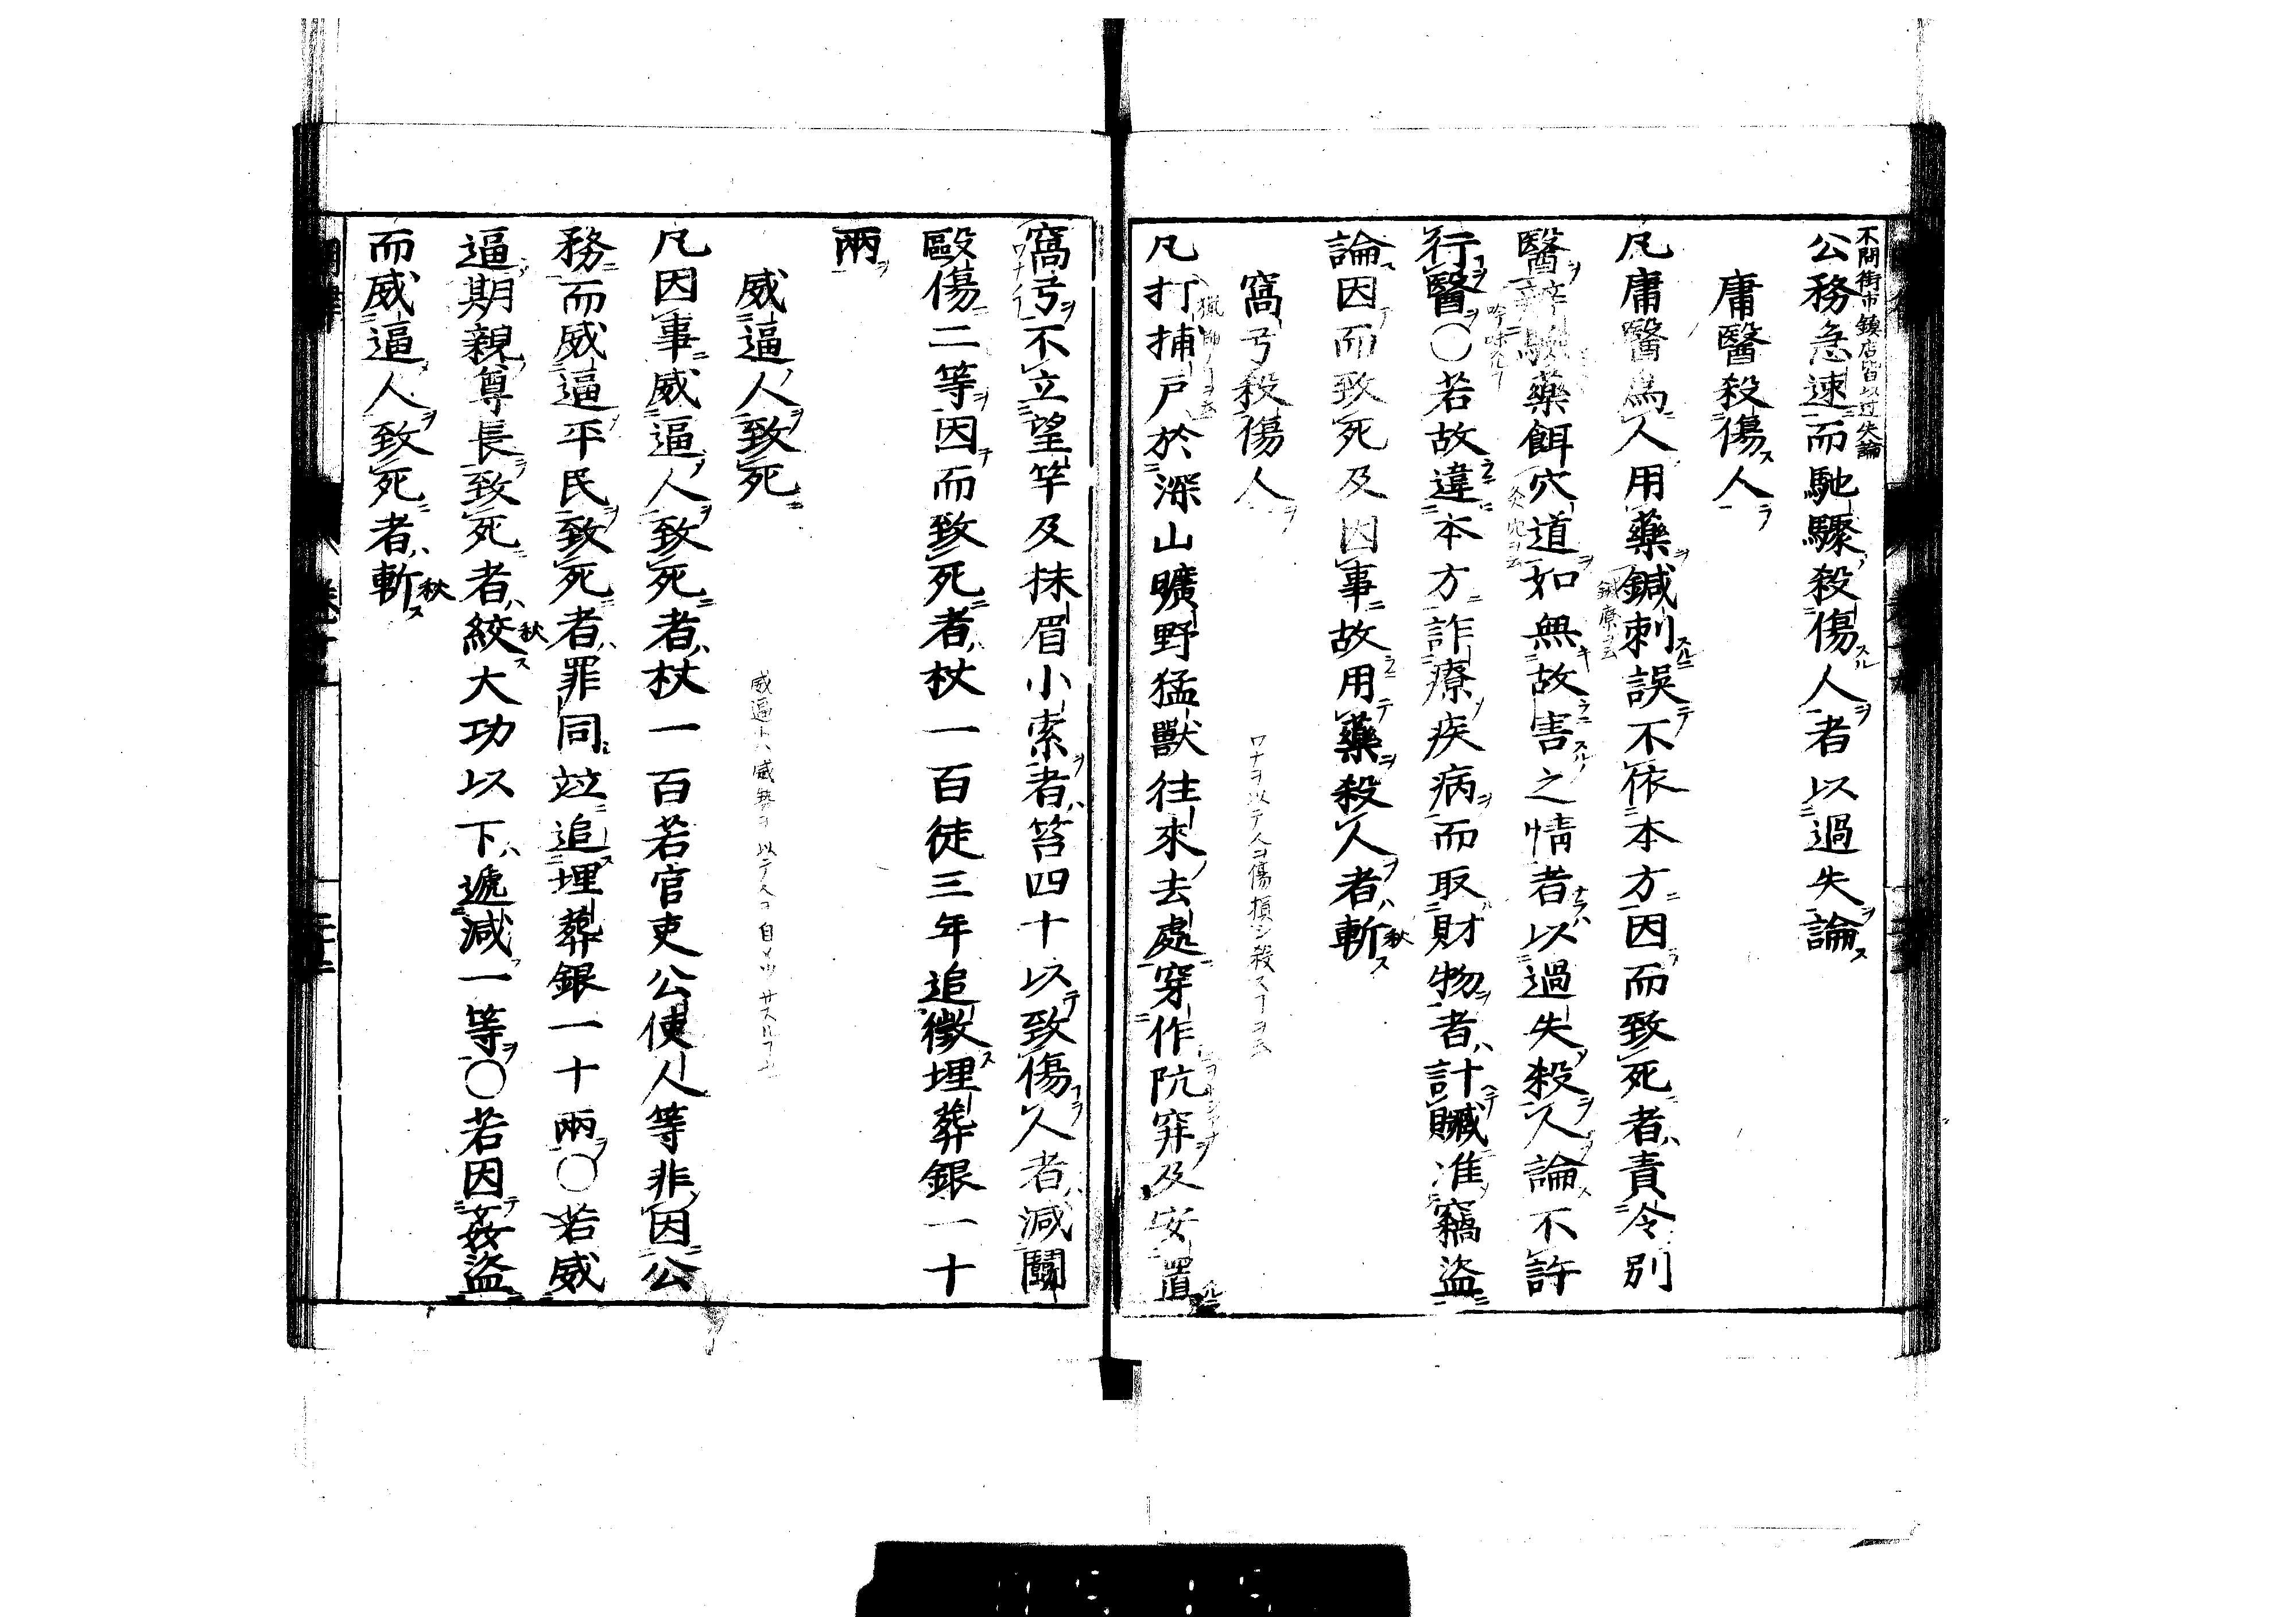 不問街市鎮店皆以过失論
公務急速而馳驟殺傷人者以過失論
庸醫殺傷人
凡庸醫爲人用藥鍼刺誤不依本方因而致死者責令別
醫辨驗藥餌穴道如無故害之情者以過失殺人論不許
行醫〇若故違本方詐療疾病而取財物者計贓准竊盜
論因而致死及因事故用藥殺人者斬秋
窩弓殺傷人
ワナヲ以テ人ヲ傷損シ殺スヿヲ云
凡打捕戸於深山曠野猛獸往來去處穿作阬穽及安置
窩弓不立望竿及抹眉小索者笞四十以致傷人者減鬪
毆傷二等因而致死者杖一百徒三年追徵埋葬銀一十
兩
威逼人致死
威逼トハ威勢ヲ以テ人ヲ自サスルヿ也
凡因事威逼人致死者杖一百若官吏公使人等非因公
務而威逼平民致死者罪同竝追埋葬銀一十兩〇若威
逼期親尊長致死者絞秋大功以下遞減一等〇若因姦盜
而威逼人致死者斬秋